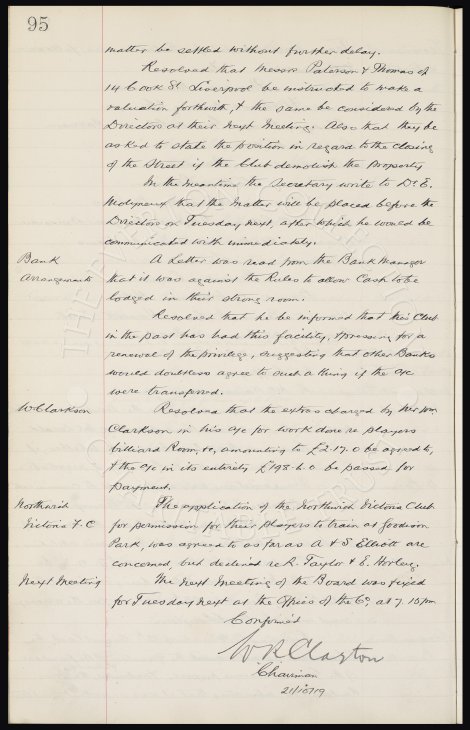 95
matter be settled without further delay.
Resolved that Messrs Paterson & Thomas of
14 Cook St. Liverpool be instructed to make a
valuation forthwith, & the same be considered by the
Directors at their next Meeting. Also that they be
asked to state the position in regard to the closing
of the Street if the Club demolish the property
In the meantime the Secretary write to Dr. E.
Molyneux that the matter will be placed before the
Directors on Tuesday next, after which he would be
communicated with immediately.
Bank Arrangements
A letter was read from the Bank Manager
that it was against the Rules to allow Cash to be
lodged in their strong room.
Resolved that he be informed that this Club
in the past has had this facility, & pressing for a
renewal of the privilege, suggesting that other Banks
would doubtless agree to such a thing if the a/c
were transferred.
W Clarkson
Resolved that the extras charged by Mr Wm
Clarkson in his a/c for work done re players
billiard Room, &c, amounting to £2.17.0 be agreed to,
& the a/c in its entirety £198.4.0 be passed for
payment.
Northwich
Victoria F.C
The application of the Northwich Victoria Club
for permission for their players to train at Goodison
Park, was agreed to as far as A & S Elliott are
concerned, but declined re R. Taylor & E. Horley.
Next Meeting
The next Meeting of the Board was fixed
for Tuesday next at the Office of the Co, at 7.15 pm
Confirmed
W R Clayton
Chairman
21/10/19